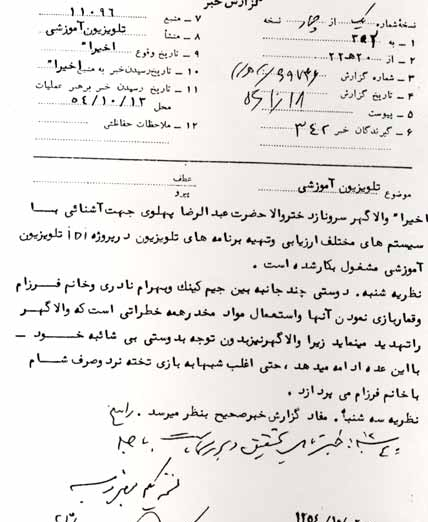 گزارش خبر
نسخه شماره یک از چهار نسخه
۱ - به ۳۴۲
۲ - از ۲۰هـ۲۲
۳ - شماره گزارش
۴ - تاریخ گزارش
۵ - پیوست
۶ - گیرندگان خبر ۳۴۲
۷ - منبع ۱۱۰۹۶
۸ - منشأ تلویزیون آموزشی
۹ - تاریخ وقوع اخیرا"
۱۰ - تاریخ رسیدن خبر به منبع اخیرا"
۱۱ - تاریخ رسیدن خبر برهبر عملیات
محل ۵۴/۱۰/۱۳
۱۲ - ملاحظات حفاظتی
موضوع تلویزیون آموزشی
عطف
پیرو
اخیرا" والاگهر سرونازد ختروالاحضرت عبدالرضا پهلوی جهت آشنائی با
سیستم های مختلف ارزیابی وتهیه برنامه های تلویزیون درپروژه iDi تلویزیون
آموزشی مشغول بکارشده است .
نظریه شنبه . دوستی چند جانبه بین جیم کینک وبهرام نادری وخانم فرزام
وقماربازی نمودن آنها واستعمال مواد مخدرهمه خطراتی است که والاگهر
راتهدید مینماید زیرا والاگهرنیزبدون توجه بدوستی بی شائبه خود -
بااین عده ادامه میدهد ، حتی اغلب شبهابه بازی تخته نرد وصرف شام
باخانم فرزام می پردازد .
نظریه سه شنبه . مفاد گزارش خبرصحیح بنظر میرسد . راسخ